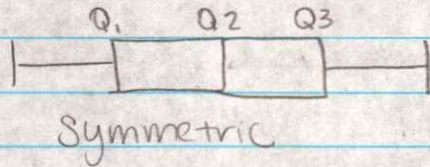 Q1 Q2 Q3
Symmetric